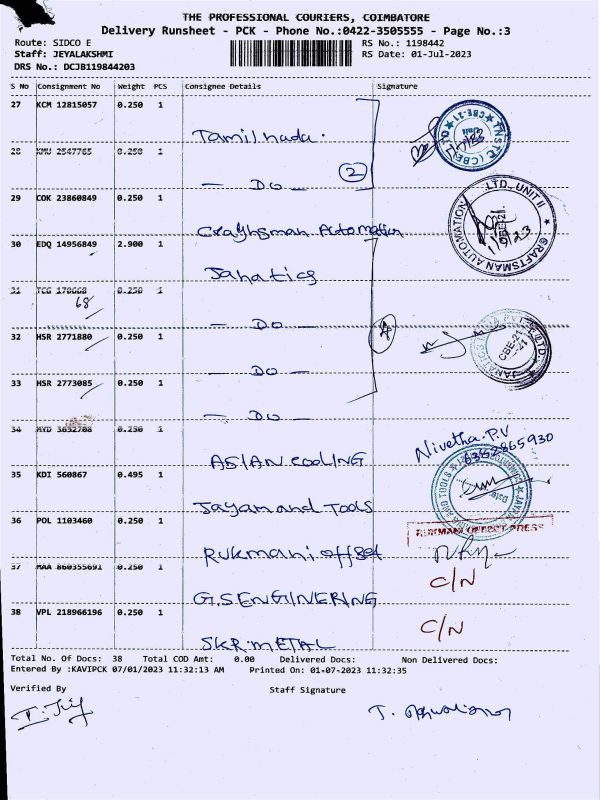 THE PROFESSIONAL COURIERS, COIMBATORE
Delivery Runsheet - PCK - Phone No.:0422-3505555 - Page No.:3
Route: SIDCO E RS No.: 1198442
Staff: JEYALAKSHMI RS Date: 01-Jul-2023
DRS No.: DCJB119844203
S No Consignment No Weight PCS Consignee Details Signature
27 KCM 12815057 0.250 1
Tamilnadu.
28 2547765 0.250 1
— DO — 2
29 COK 23860849 0.250 1
Crayhsman Automation
CRAFTSMAN AUTOMATION LTD. UNIT II
30 EDQ 14956849 2.900 1
Janatics
31 TCG 0.250 1
68
— DO — 4
32 HSR 2771880 0.250 1
— DO —
33 HSR 2773085 0.250 1
— DO —
34 0.250 1
Nivetha.P.V
ASIAN COOLING
35 KDI 560867 0.495 1
Jayam and Tools
36 POL 1103460 0.250 1
RUKMANI OFFSET PRESS
Rukmani offset
37 MAA 860355691 0.250 1
C/N
G.S ENGINERING
38 VPL 218966196 0.250 1
C/N
SKR METAL
Total No. Of Docs: 38 Total COD Amt: 0.00 Delivered Docs: Non Delivered Docs:
Entered By :KAVIPCK 07/01/2023 11:32:13 AM Printed On: 01-07-2023 11:32:35
Verified By Staff Signature